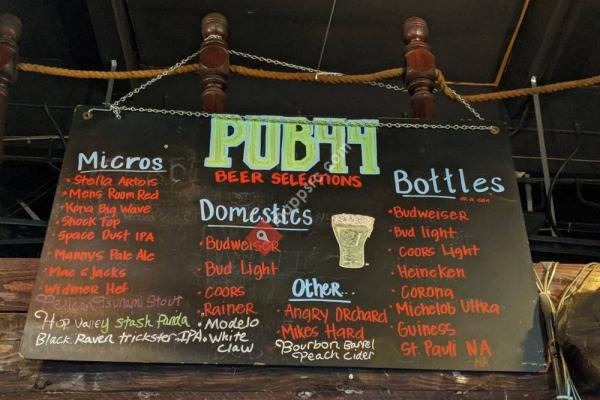 PUB44
BEER SELECTIONS
Micros
Stella Artois
Mens Room Red
Kona Big Wave
Shock Top
Space Dust IPA
Mannys Pale Ale
Mac & Jacks
Widmer Hef
Pelican Tsunami Stout
Hop Valley stash Panda
Black Raven trickster IPA
Domestics
Budweiser
Bud Light
Coors
Rainer
Modelo
White
Claw
Other...
Angry Orchard
Mikes Hard
Bourbon Barrel
Peach Cider
Bottles
or a can
Budweiser
Bud light
Coors Light
Heineken
Corona
Michelob Ultra
Guiness
St Pauli NA
NA